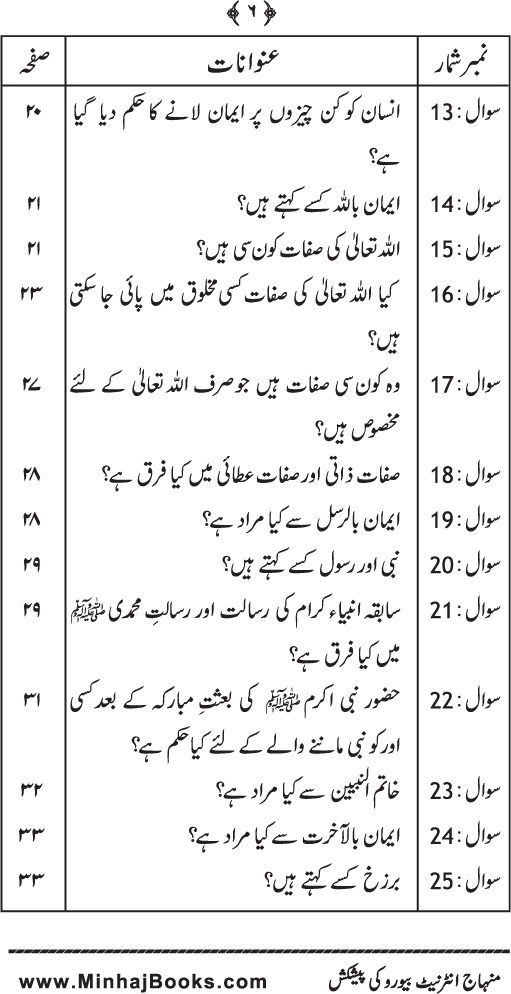 ﴿ ۶ ﴾
نمبر شمار عنوانات صفحہ
سوال : 13 انسان کو کن چیزوں پر ایمان لانے کا حکم دیا گیا ۲۰
ہے؟
سوال : 14 ایمان باللہ کسے کہتے ہیں؟ ۲۱
سوال : 15 اللہ تعالیٰ کی صفات کون سی ہیں؟ ۲۱
سوال : 16 کیا اللہ تعالیٰ کی صفات کسی مخلوق میں پائی جا سکتی ۲۳
ہیں؟
سوال : 17 وہ کون سی صفات ہیں جو صرف اللہ تعالیٰ کے لئے ۲۷
مخصوص ہیں؟
سوال : 18 صفات ذاتی اور صفات عطائی میں کیا فرق ہے؟ ۲۸
سوال : 19 ایمان بالرسل سے کیا مراد ہے؟ ۲۸
سوال : 20 نبی اور رسول کسے کہتے ہیں؟ ۲۹
سوال : 21 سابقہ انبیاء کرام کی رسالت اور رسالتِ محمدی ﷺ ۲۹
میں کیا فرق ہے؟
سوال : 22 حضور نبی اکرم ﷺ کی بعثتِ مبارکہ کے بعد کسی ۳۱
اور کو نبی ماننے والے کے لئے کیا حکم ہے؟
سوال : 23 خاتم النبیین سے کیا مراد ہے؟ ۳۲
سوال : 24 ایمان بالآخرت سے کیا مراد ہے؟ ۳۳
سوال : 25 برزخ کسے کہتے ہیں؟ ۳۳
منہاج انٹرنیٹ بیورو کی پیشکش www.MinhajBooks.com